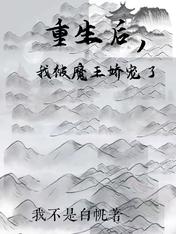 重生后，
我被魔王娇宠了
我不是白帆著